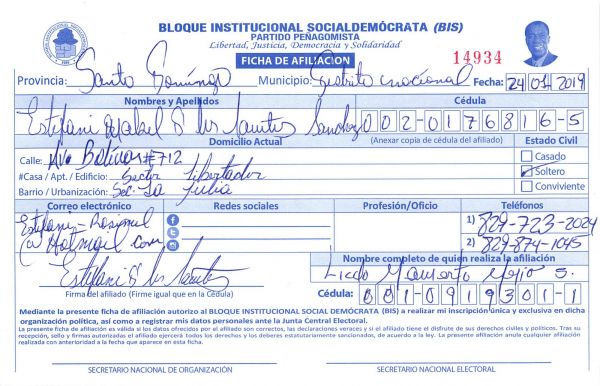 BLOQUE INSTITUCIONAL SOCIALDEMÓCRATA (BIS)
PARTIDO PEÑAGOMISTA
Libertad, Justicia, Democracia y Solidaridad
FICHA DE AFILIACIÓN
14934
Provincia: Santo Domingo Municipio: Distrito nacional Fecha: 24 01 2019
Nombres y Apellidos Cédula
Estefani de los Santos Sanchez 002-0176816-5
Domicilio Actual (Anexar copia de cédula del afiliado) Estado Civil
Calle: Av. Bolivar #712 Casado
#Casa / Apt. / Edificio: Sector Libertador Soltero
Barrio / Urbanización: Sec. La Julia Conviviente
Correo electrónico Redes sociales Profesión/Oficio Teléfonos
Estefani-
@ Hotmail com
1) 829-723-2024
2) 829-874-1045
Nombre completo de quien realiza la afiliación
Estefani D los Santos
Firma del afiliado (Firme igual que en la Cédula)
Cédula: 001-0919301-1
Mediante la presente ficha de afiliación autorizo al BLOQUE INSTITUCIONAL SOCIAL DEMÓCRATA (BIS) a realizar mi inscripción única y exclusiva en dicha
organización política, así como a registrar mis datos personales ante la Junta Central Electoral.
La presente ficha de afiliación es válida si los datos ofrecidos por el afiliado son correctos, las declaraciones veraces y si el afiliado tiene el disfrute de sus derechos civiles y políticos. Tras su
recepción, sello y firmas autorizadas el afiliado ejercerá todos los derechos y los deberes estatutariamente sancionados, de acuerdo a la ley. La presente afiliación anula cualquier afiliación
realizada con anterioridad a la fecha que aparece en esta ficha.
SECRETARIO NACIONAL DE ORGANIZACIÓN SECRETARIO NACIONAL ELECTORAL